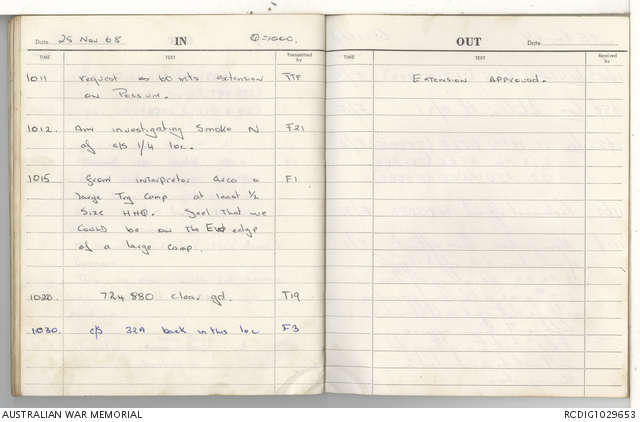 Date 25 Nov 68 IN
TIME TEXT Transmitted by
1011 request a 60 mts extension TTF
on Possum.
1012. Am investigating Smoke N F21
of c/s 1/4 loc.
1015 from interpreter area a F1
large Trg Camp at least 1/2
Size HHQ. feel that we
could be on the edge
of a large camp.
1020. 724880 clear gd. T19
1030. c/s 32A back in this loc F3
OUT Date
TIME TEXT Received by
EXTENSION APPROVED.
AUSTRALIAN WAR MEMORIAL
RCDIG1029653